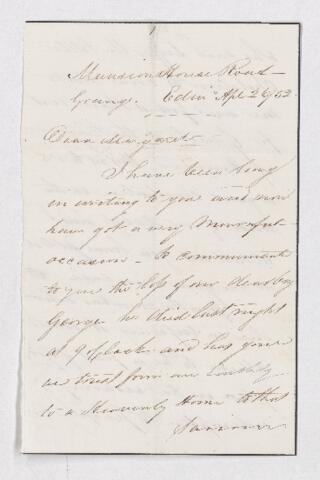 Mansion House Road
Grange. Edinr Apl 26/52
Dear Margaret
I have been long
in writing to you and now
have got a very mournful
occasion - to communicate
to you the loss of our dear boy
George he died last night
at 9 oClock and has gone
we trust from an Earthly
to a Heavenly Home to that
Saviour